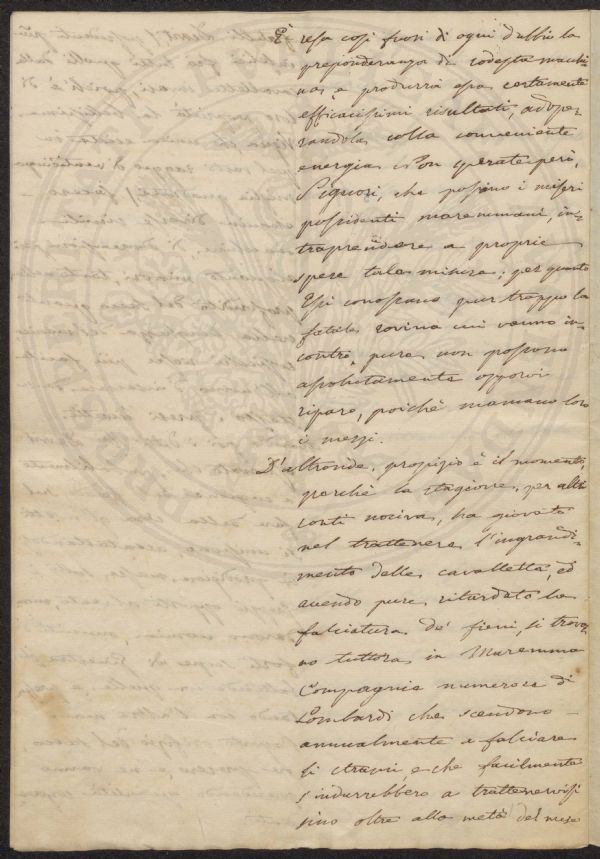 È resa così fuori di ogni dubbio la
preponderanza di codesta macchi
na, e produrrà essa certamente
efficacissimi risultati, adope
randola colla conveniente
energia. Non sperate però,
Signori, che possino i miseri
possidenti maremmani, in-
traprendere a proprie
spese tale misura; per quanto
Essi conoscano pur troppo la
fatale rovina cui vanno in-
contro, pure non possono
assolutamente opporvi
riparo, poichè mancano loro
i mezzi.
D'altronde, propizio è il momento,
perchè la stagione, per altri
conti nociva, ha giovato
nel trattenere l'ingrandi-
mento delle cavallette, ed
avendo pure ritardato la
falciatura de' fieni, si trova
no tuttora in Maremma
Compagnie numerose di
Lombardi che scendono
annualmente a falciare
li strami, e che facilmente
s'indurrebbero a trattenervisi
sino oltre alla metà del mese